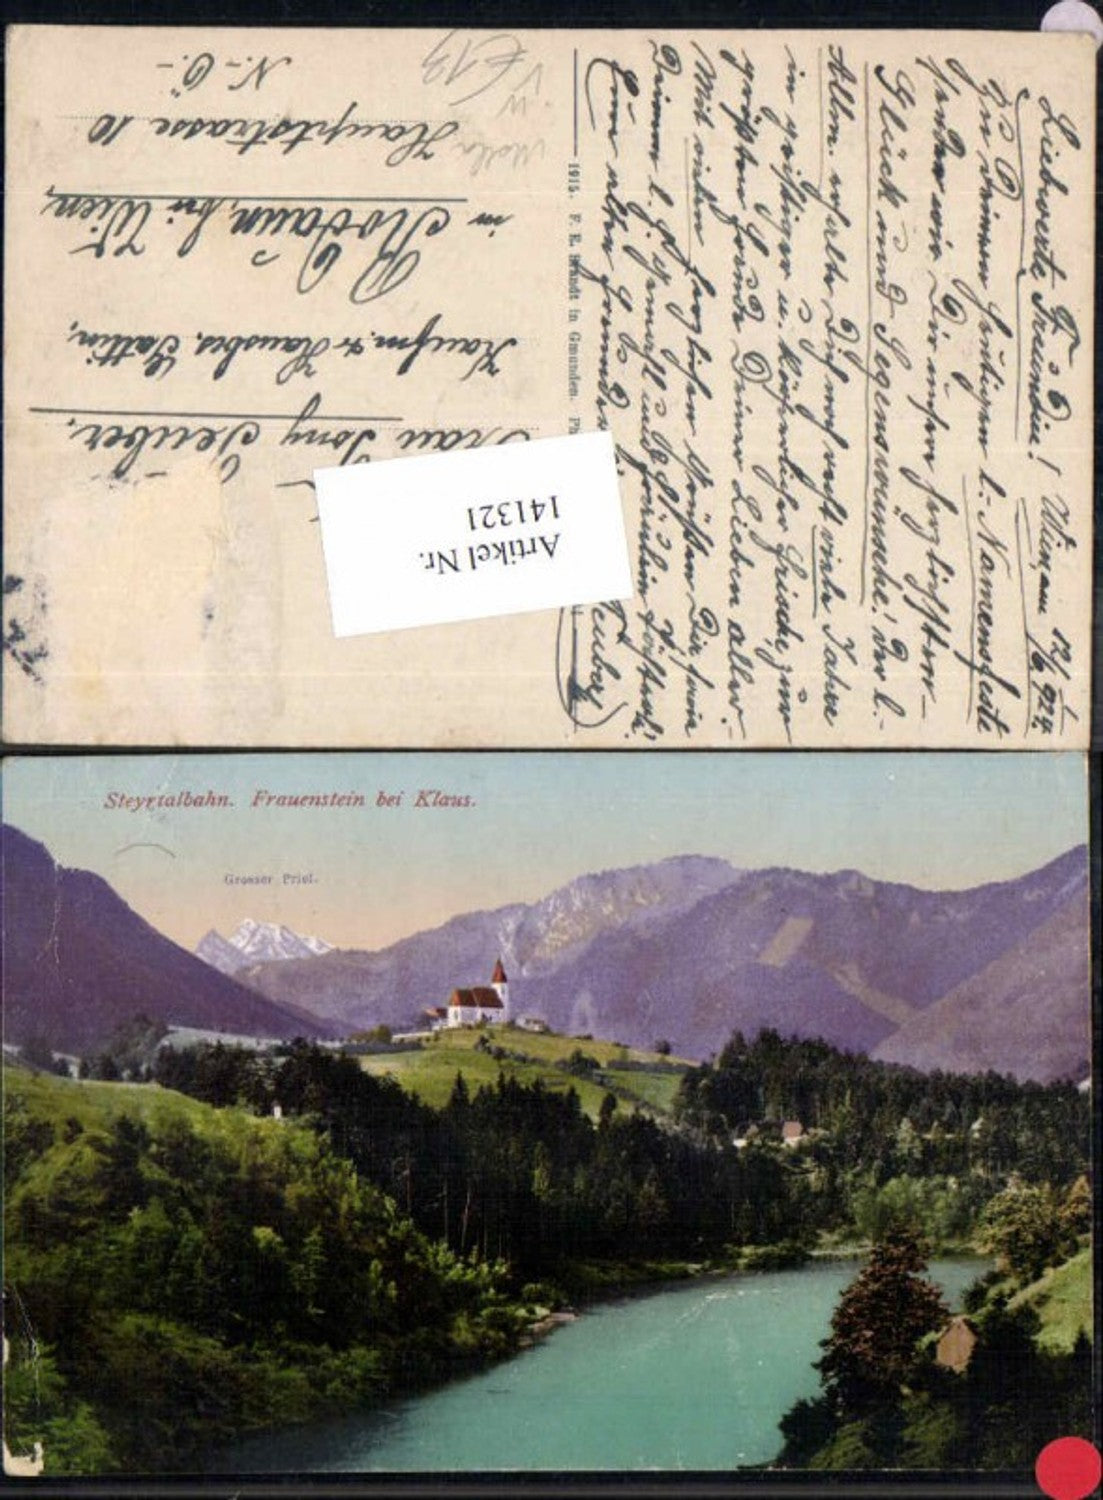 Liebwerte Freundin! Wien, am 12/6 924.
Zu Deinem heutigen l. Namensfeste
senden wir Dir unsere herzlichsten
Glück und Segenswünsche! Der l.
Allm. erhalte Dich noch recht viele Jahre
in geistiger u. körperlicher Frische, zur
größten Freude Deiner Lieben aller.
Mit vielen herzlichen Grüßen Dir sowie
Deinem l. H. Gemahl und
1915. F. E. Brandt in Gmunden.
Frau Tony
Kaufm. & Hausbes. Gattin,
in Rodaun, bei Wien,
Hauptstrasse 10
N.-Ö.-
Artikel Nr.
141321
Steyrtalbahn. Frauenstein bei Klaus.
Grosser Priel.